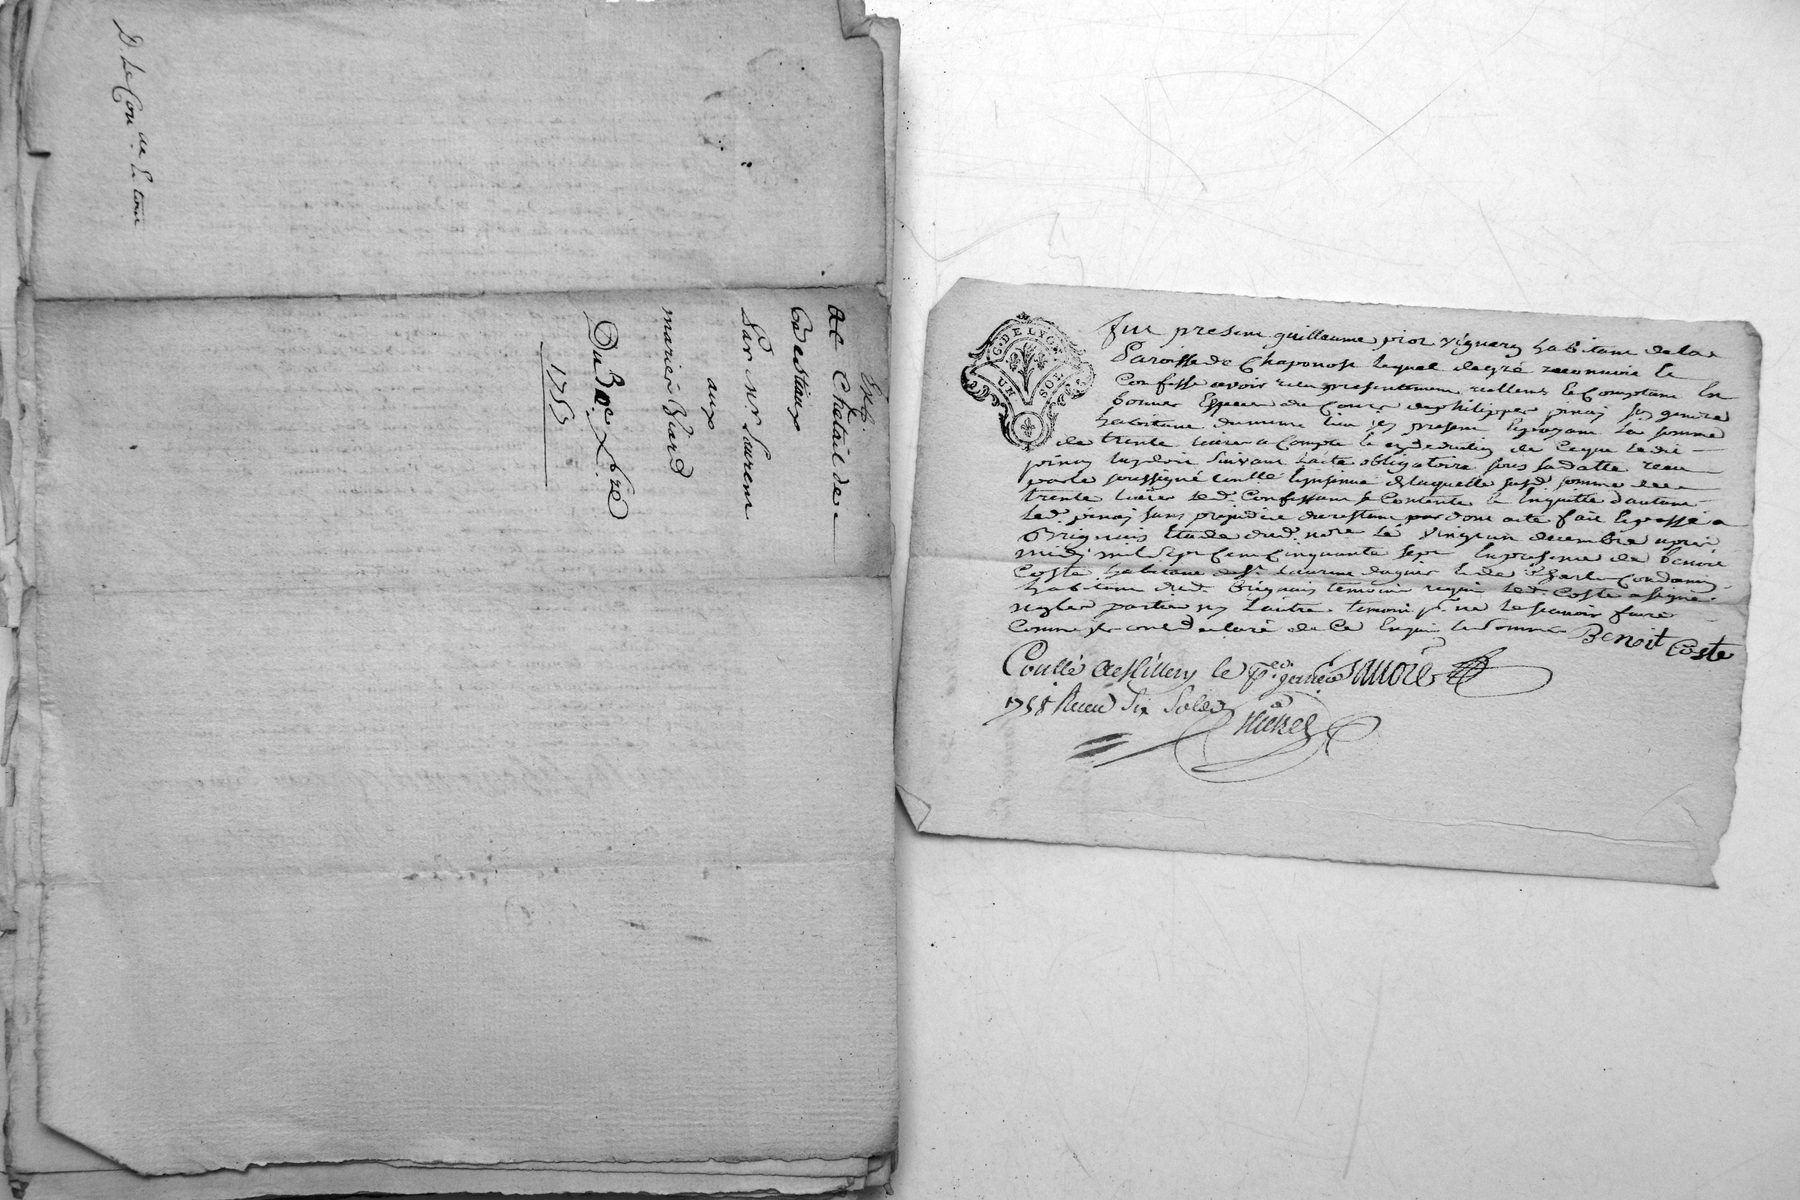 D. Le Con.
Expl.
Chetail de
Bestiaux
Par Mr. Laurent
aux
mariés Biard
Du 3 Dbre
1753
G. DE LYON
UN SOL
fut present guillaume pior vigneron habitant de la
Paroisse de Chaponost lequel de gré reconnoit et
Confesse avoir reçu presentement reellement comptant en
bonnes Especes du Cours de philippe pinay son gendre
habitant du meme lieu icy present et payant la somme
de trente livres a Compte et en deduction de ce que led.
pinay luy doit suivant l'acte obligatoire sous sa datte reçu
par le soussigné Controllé Insinué de laquelle susd. somme de
trente livres led. Confessant se Contente et En quitte d'autant
led. pinay sans prejudice du restant par dont acte fait et passé a
Brignais Etude dud. nore le vingt un decembre apres
midi mil sept Cent Cinquante sept En presence de benoit
Coste habitant de St. Laurent d'agny et de Charle Condamin
habitant dud. Brignais temoins requis led. Coste a signé
non les parties ny l'autre temoin pr. ne le sçavoir faire
Comme ils ont declaré de Ce Enquis et sommés Benoit Coste
Conllé a Millery le janvier
1758 Reçu Six Sols